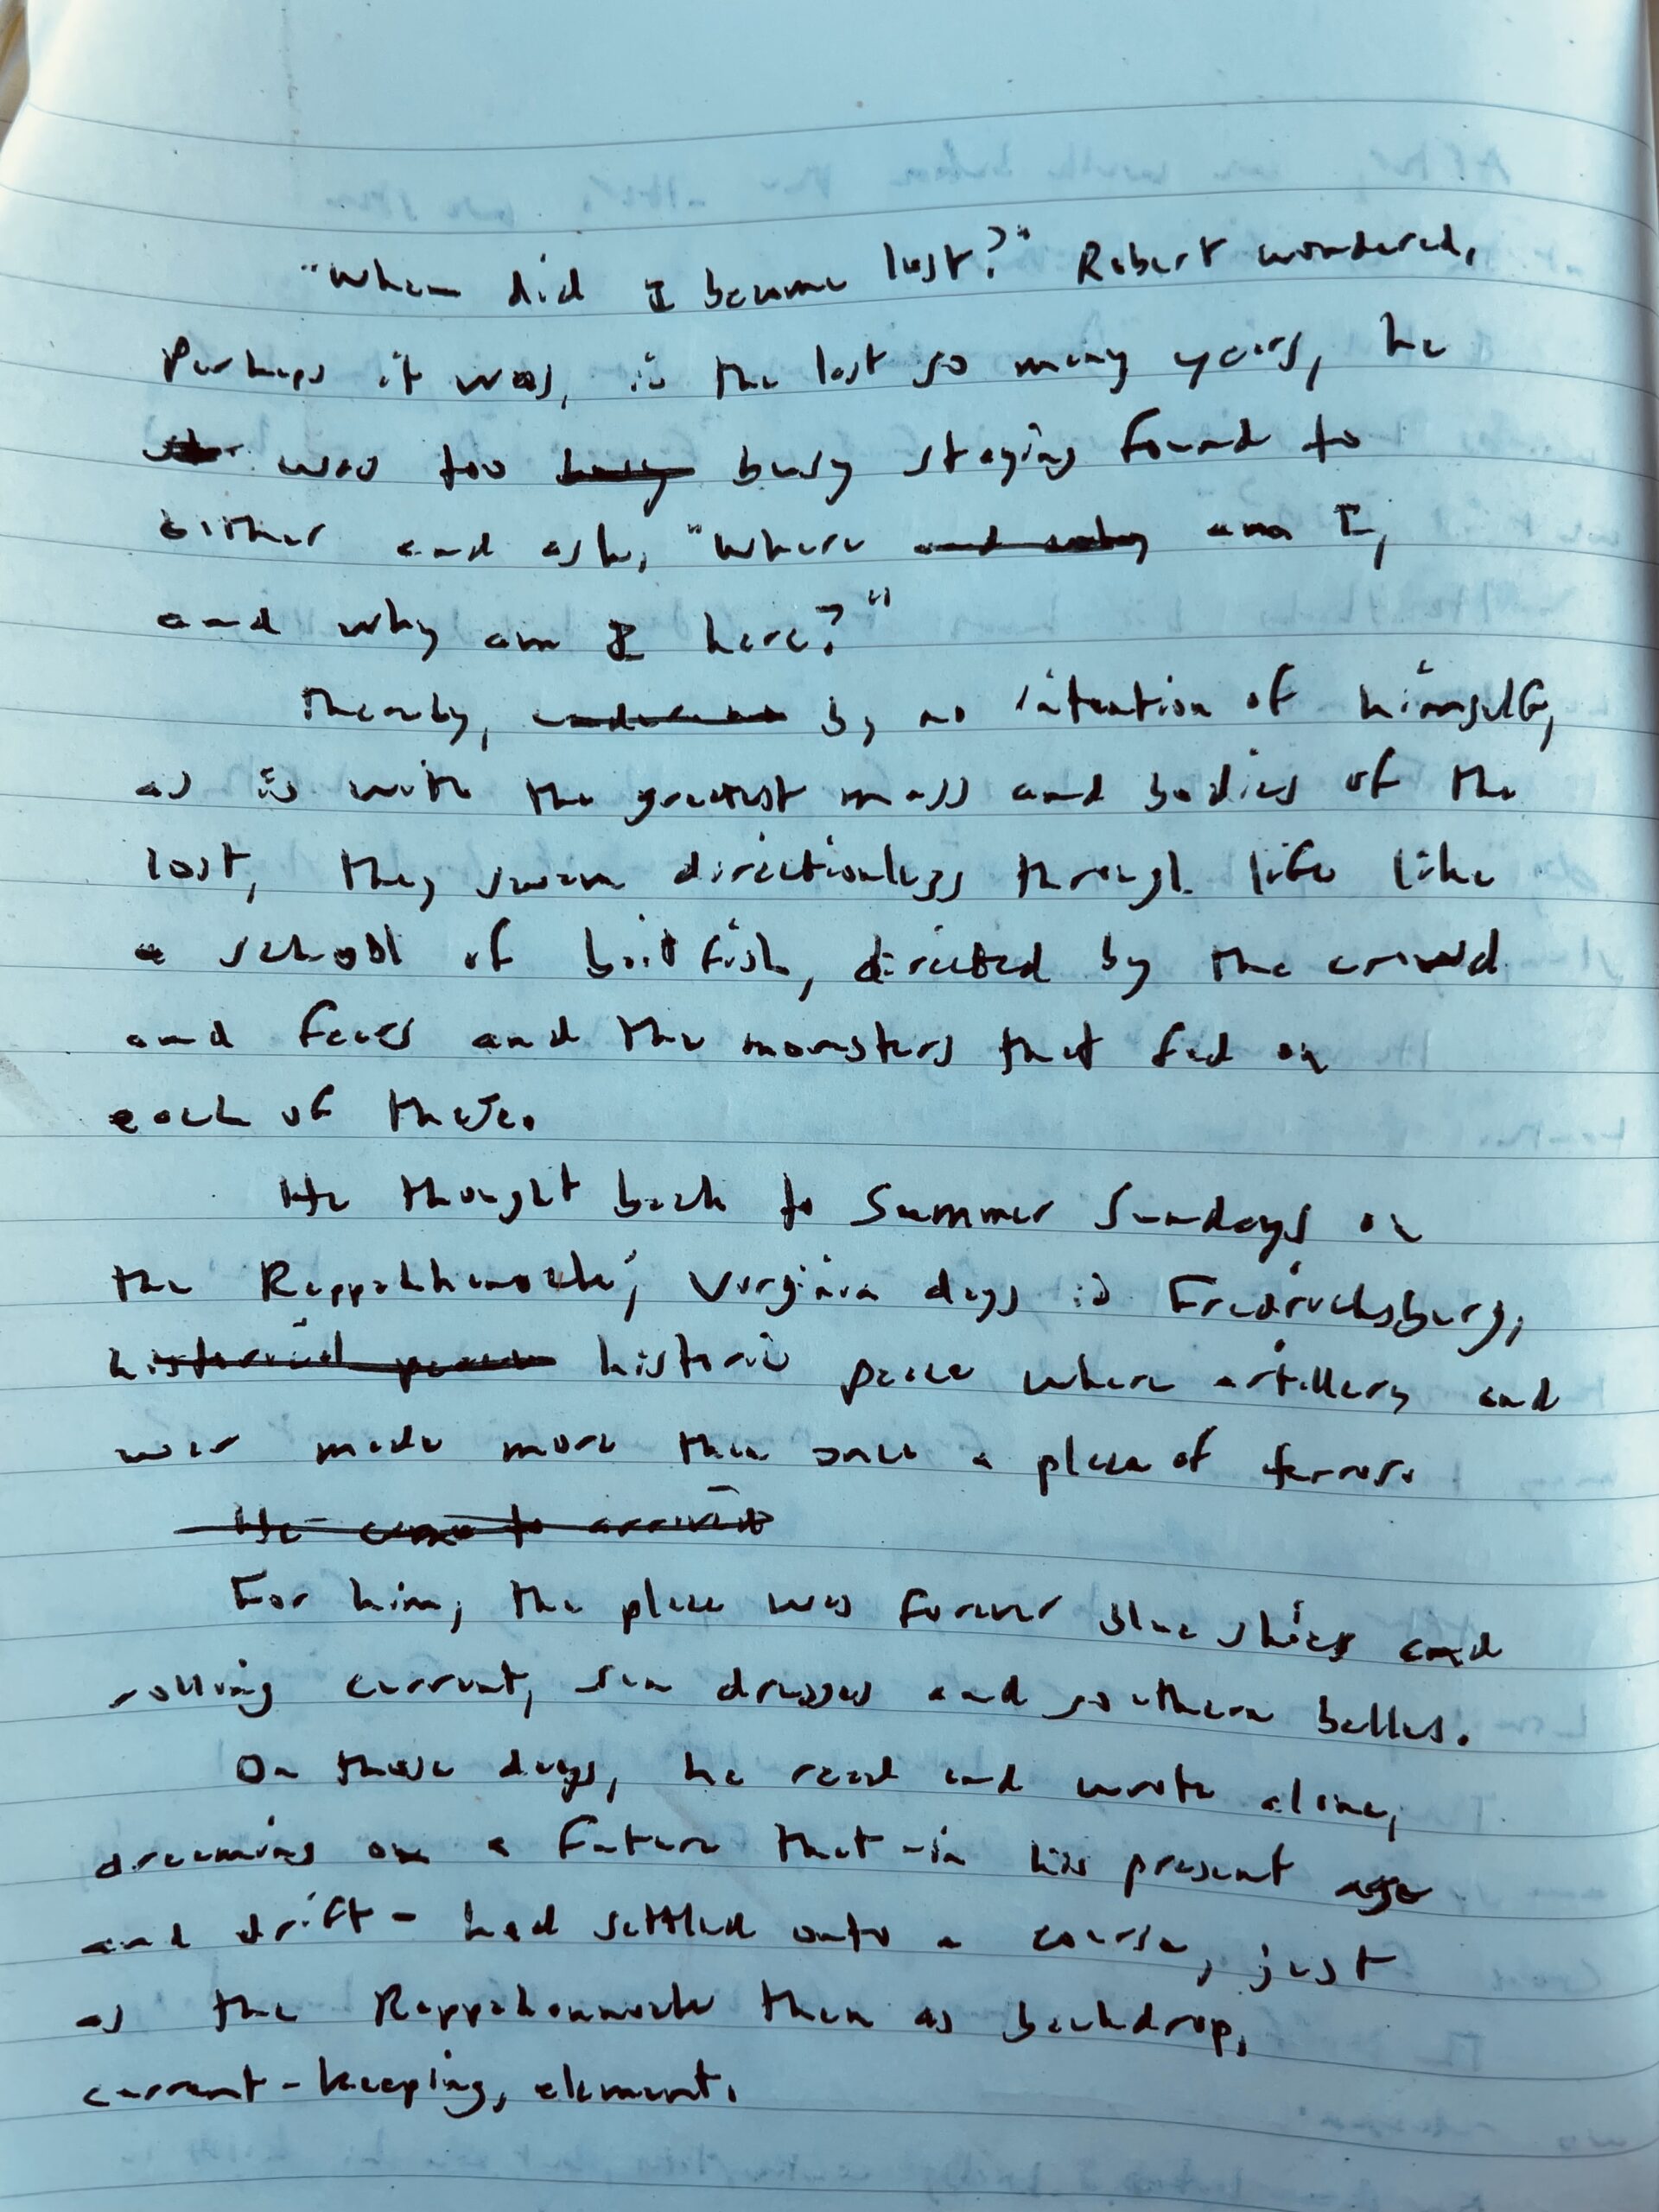 "When did I become lost?" Robert wondered.
Perhaps it was, in the last so many years, he
was too busy busy staying found to
either and ask, "Where and why am I,
and why am I here?"
Thereby, by no intention of himself,
as is with the greatest mass and bodies of the
lost, they swam directionless through life like
a school of bait fish, directed by the crowd
and fears and the monsters that fed on
each of these.
He thought back to Summer Sundays on
the Rappahhanock, Virginia days in Fredricksburg,
historical peace historic peace where artillery and
war made more than once a place of terror.
He came to arrived
For him, the place was forever blue skies and
rolling current, sun dresses and southern belles.
On those days, he read and wrote alone,
dreaming on a future that - in his present age
and drift - had settled onto a course, just
as the Rappahannock then as backdrop,
current-keeping, element.